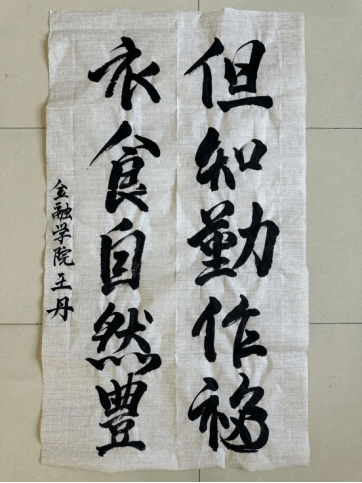 但知勤作福
衣食自然豐
金融学院王丹